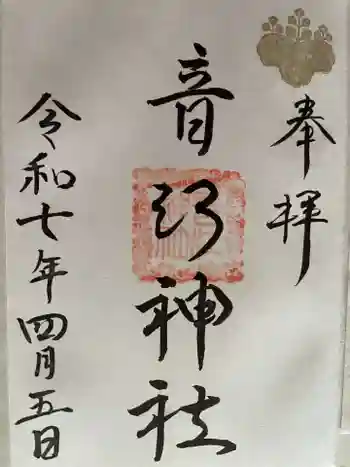 奉拝
音形神社
令和七年四月五日